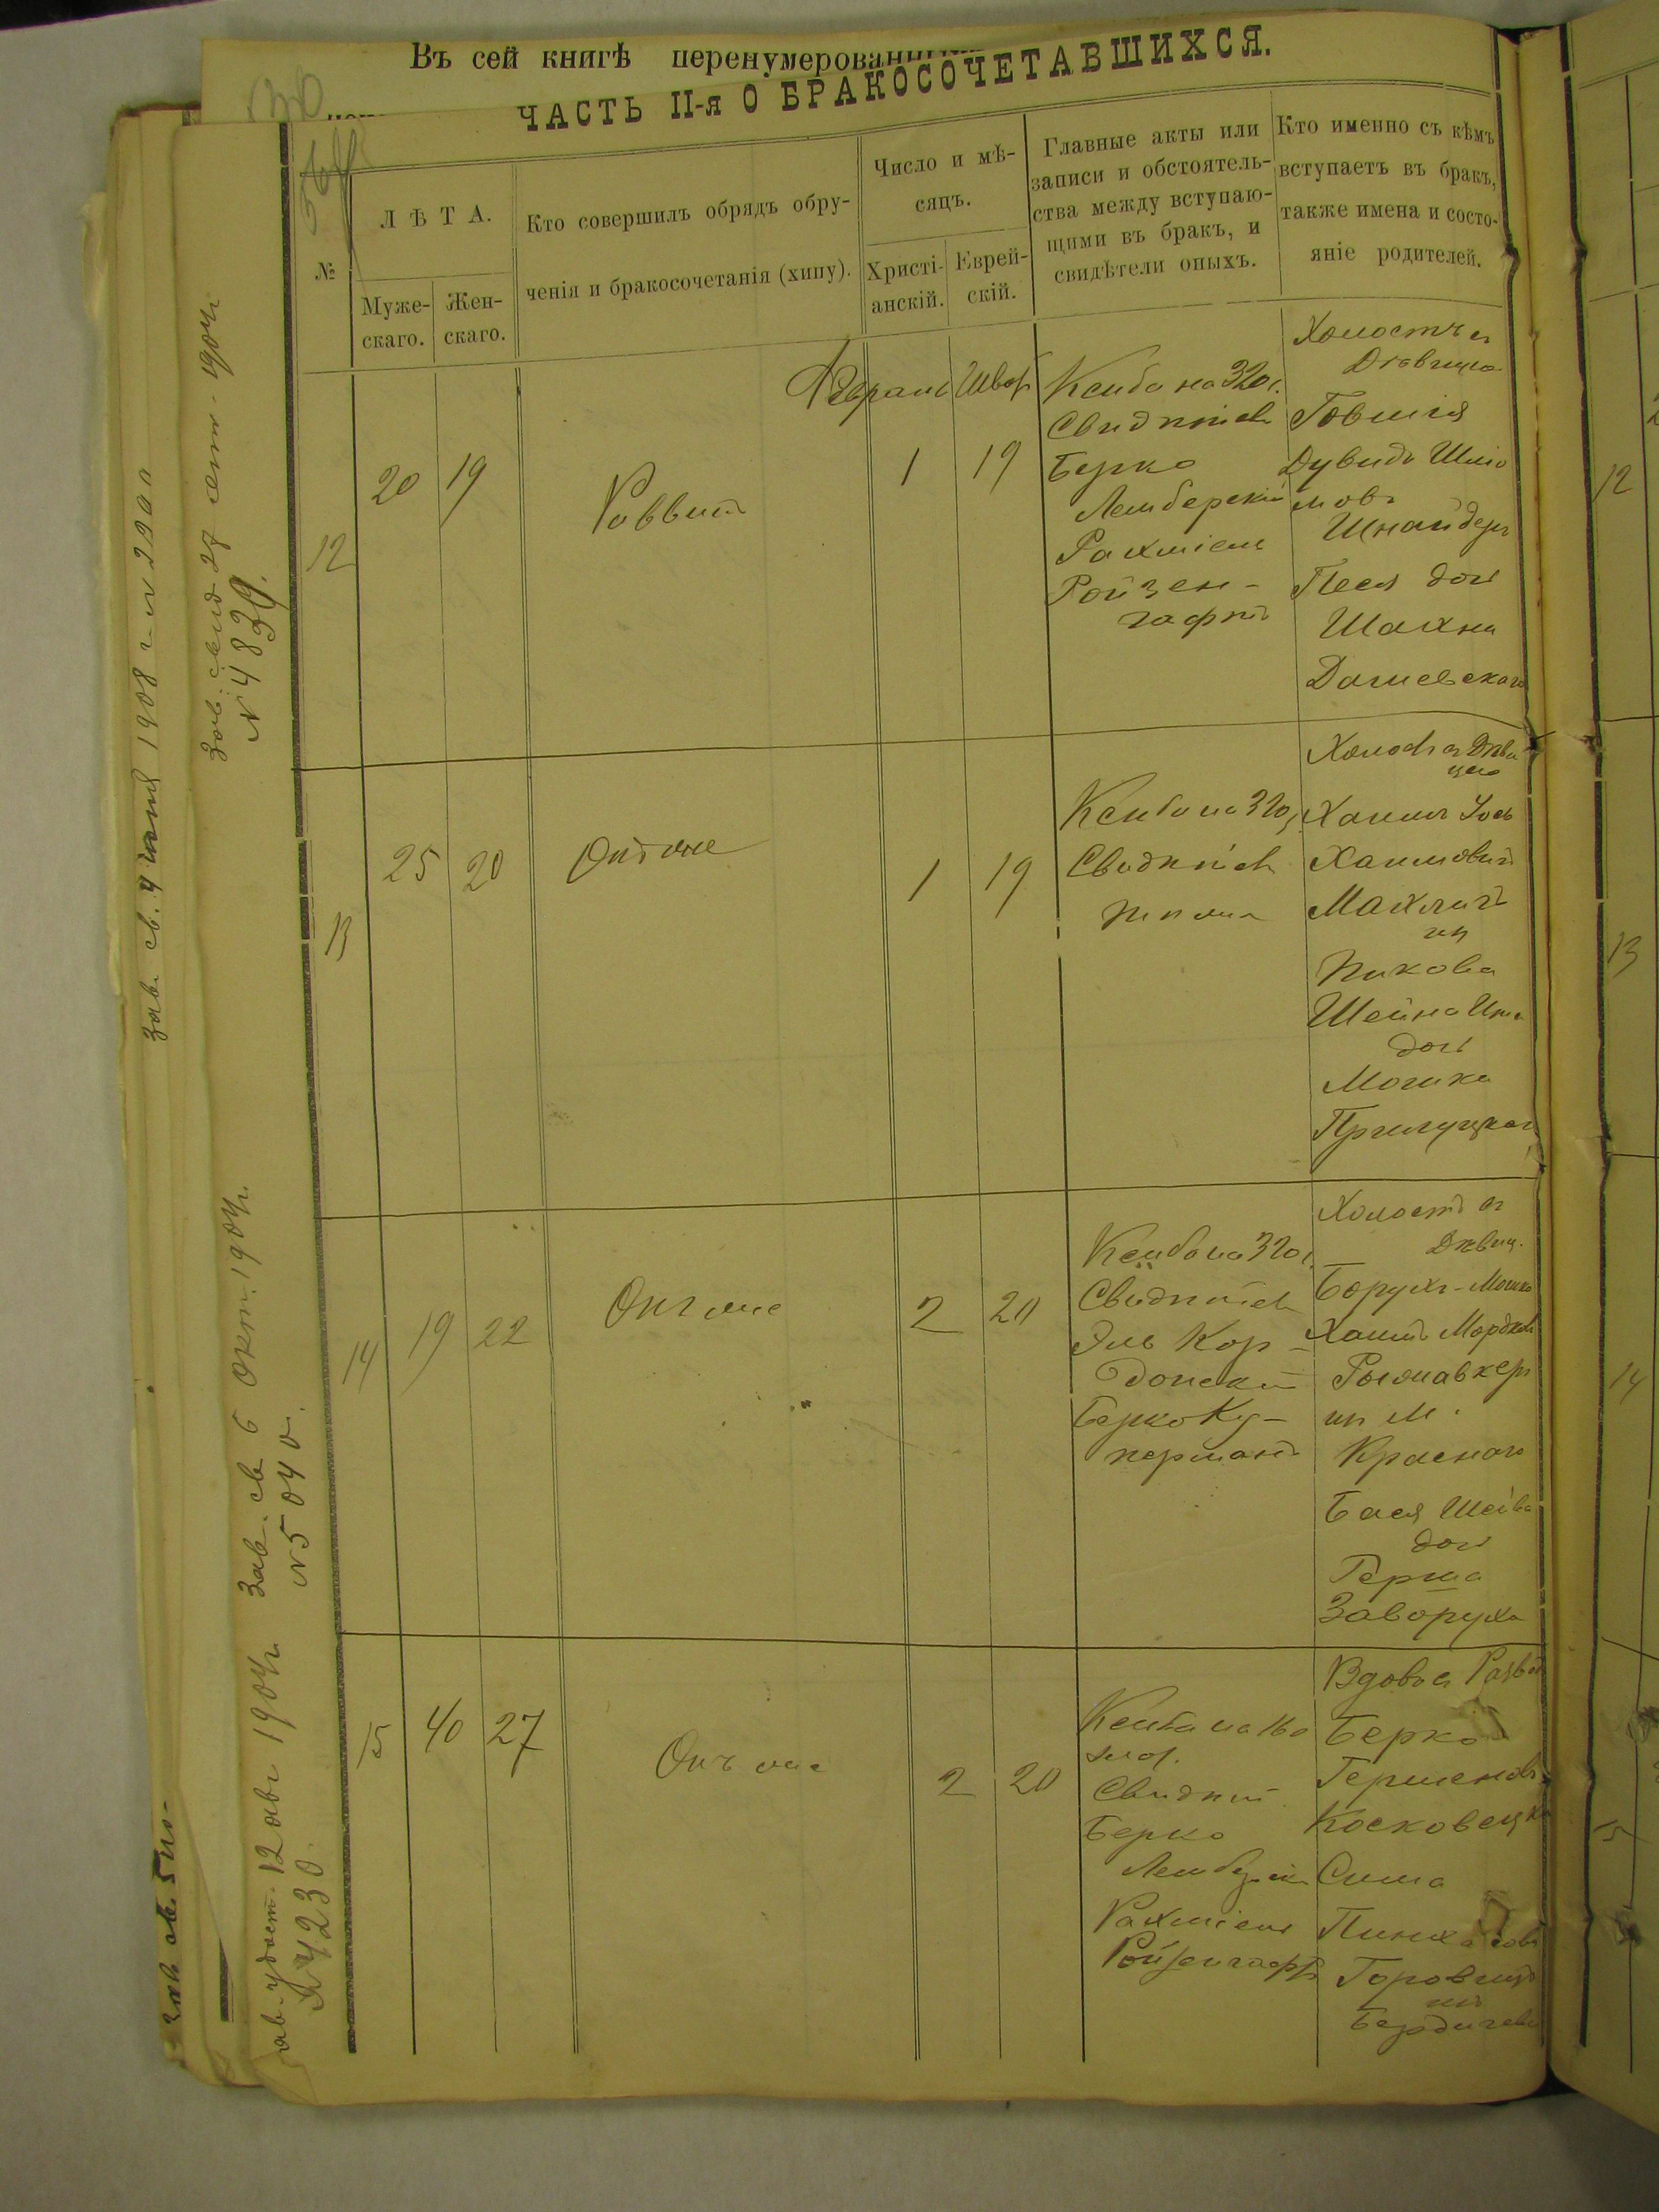 Въ сей книгѣ перенумерован
ЧАСТЬ II-я О БРАКОСОЧЕТАВШИХСЯ.
№
ЛѢТА.
Муже-
скаго.
Жен-
скаго.
Кто совершилъ обрядъ обру-
ченія и бракосочетанія (хипу).
Число и мѣ-
сяцъ.
Христі-
анскій.
Еврей-
скій.
Главные акты или
записи и обстоятель-
ства между вступаю-
щими въ бракъ, и
свидѣтели оныхъ.
Кто именно съ кѣмъ
вступаетъ въ бракъ,
также имена и состо-
яніе родителей.
12
20
19
Раввинъ
Февраль
Шват
1
19
Ксиба на 320
Свидѣтели
Берко
Лемберскій
Рахміель
Ройзен-
гафтъ
Холостъ и
Дѣвица
Говшія
Дувидъ Шмо
мовъ
Шнайдеръ
Песя доч
Шахна
Дашевскаго
13
25
20
Онъ же
1
19
Ксиба на 320
Свидѣтели
тѣ же
Холостъ и Дѣви
цею
Хаимъ Іось
Хаимовичъ
Махличъ
изъ
Пикова
Шейна Ита
доч
Мошка
Прилуцкаго
14
19
22
Онъ же
2
20
Ксиба на 320
Свидѣтели
Эль Кор-
донскій
Берко Ку-
перманъ
Холостъ и
Дѣвиц.
Борухъ-Мошко
Хаимъ Мордков
изъ М.
Краснаго
Бася Шейва
доч
Герша
Заворуха
15
40
27
Онъ же
2
20
Ксиба на 160
Свидѣт
Берко
Лемберскій
Рахміель
Ройзенгафтъ
Вдовъ и Развед
Берко
Гершковъ
Косковецкій
Сима
Пинхасова
Горовицъ
изъ
Бердичева
Зав. свид. 27 сент. 1904 г.
№ 4839.
Зав. св. 6 Окт. 1904 г.
№ 5040.
12 авг. 1904 г.
№ 4230
12
13
14
15